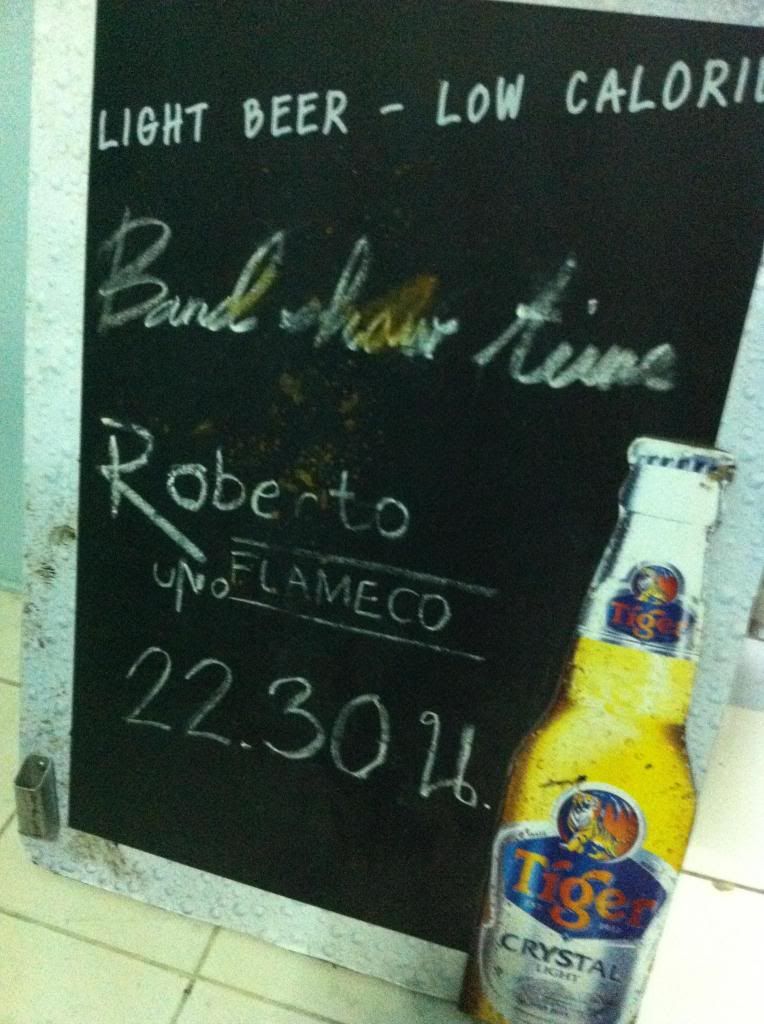 LIGHT BEER - LOW CALORIE
Band show time
Roberto
uno FLAMECO
22.30 น.
Tiger
Tiger
CRYSTAL
LIGHT